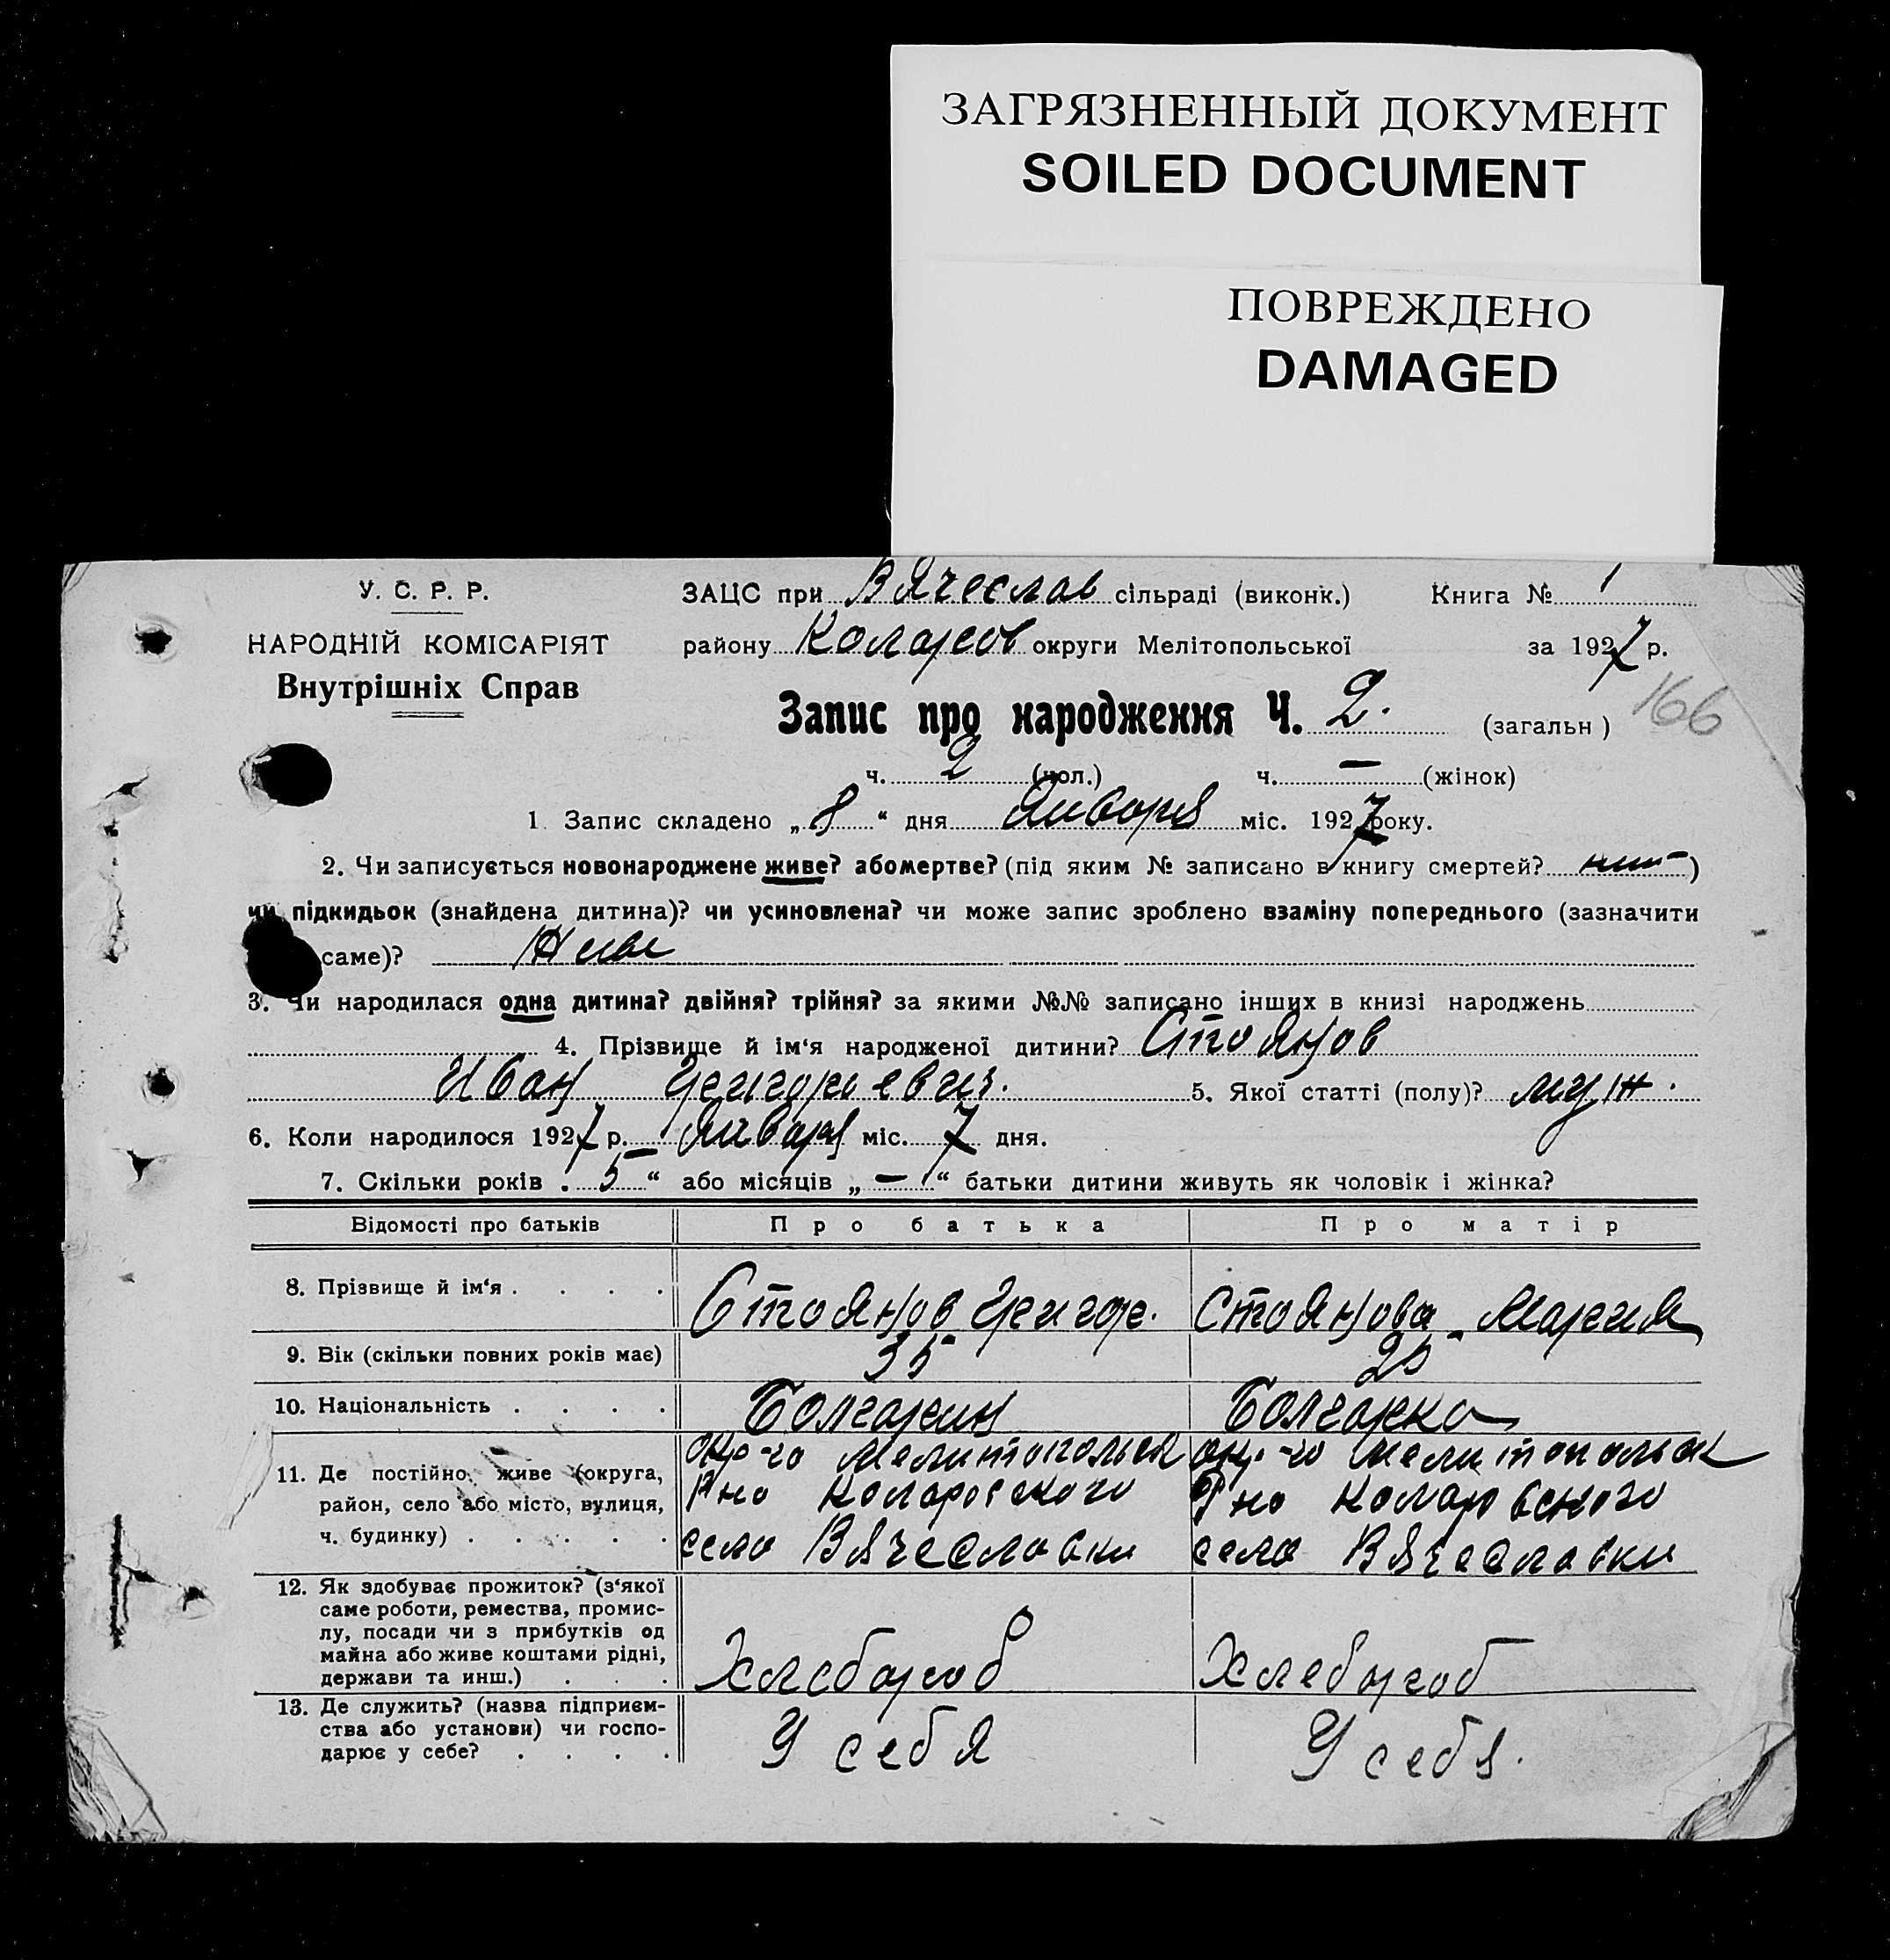 ЗАГРЯЗНЕННЫЙ ДОКУМЕНТ
SOILED DOCUMENT
ПОВРЕЖДЕНО
DAMAGED
У. С. Р. Р.
НАРОДНІЙ КОМІСАРІЯТ
Внутрішніх Справ
ЗАЦС при Вячеслав сільраді (виконк.) Книга № 1
району Коларов округи Мелітопольської за 1927 р.
166
Запис про народження Ч. 2. (загальн)
ч. 2 (чол.) ч. — (жінок)
1. Запис складено „8“ дня Января міс. 1927 року.
2. Чи записується новонароджене живе? або мертве? (під яким № записано в книгу смертей? нит)
чи підкидьок (знайдена дитина)? чи усиновлена? чи може запис зроблено взаміну попереднього (зазначити
саме)? Живе
3. Чи народилася одна дитина? двійня? трійня? за якими №№ записано інших в книзі народжень
4. Прізвище й ім‘я народженої дитини? Стоянов
Иван Григорьевич. 5. Якої статті (полу)? муж.
6. Коли народилося 1927 р. Января міс. 7 дня.
7. Скільки років „5“ або місяців „—“ батьки дитини живуть як чоловік і жінка?
Відомості про батьків Про батька Про матір
8. Прізвище й ім‘я . . . . Стоянов Григор. Стоянова Мария
9. Вік (скільки повних років має) 35 25
10. Національність . . . . Болгарин Болгарка
11. Де постійно живе (округа, район, село або місто, вулиця, ч. будинку) . . . . . окр-го Мелитопольск Р-но Коларовского село Вячеславки окр-го Мелитопольск Р-но Коларовского село Вячеславки
12. Як здобуває прожиток? (з‘якої саме роботи, ремества, промислу, посади чи з прибутків од майна або живе коштами рідні, держави та инш.) . . . Хлебороб Хлебороб
13. Де служить? (назва підприємства або установи) чи господарює у себе? . . . . У себя У себя.